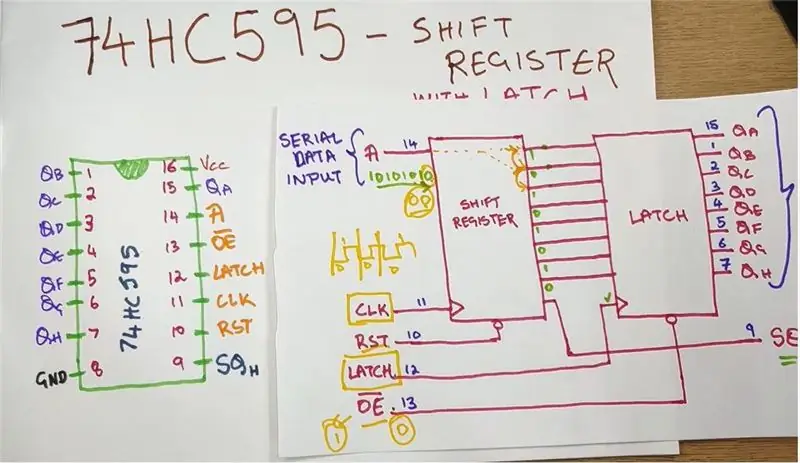 74HC595 - SHIFT
REGISTER
WITH LATCH
QB 1
QC 2
QD 3
QE 4
QF 5
QG 6
QH 7
GND 8
74HC595
16 Vcc
15 QA
14 A
13 OE
12 LATCH
11 CLK
10 RST
9 SQH
SERIAL
DATA
INPUT
A 14
10101010
00
CLK 11
RST 10
LATCH 12
OE 13
1 0
SHIFT
REGISTER
1
0
1
0
1
0
LATCH
15 QA
1 QB
2 QC
3 QD
4 QE
5 QF
6 QG
7 QH
9 SE